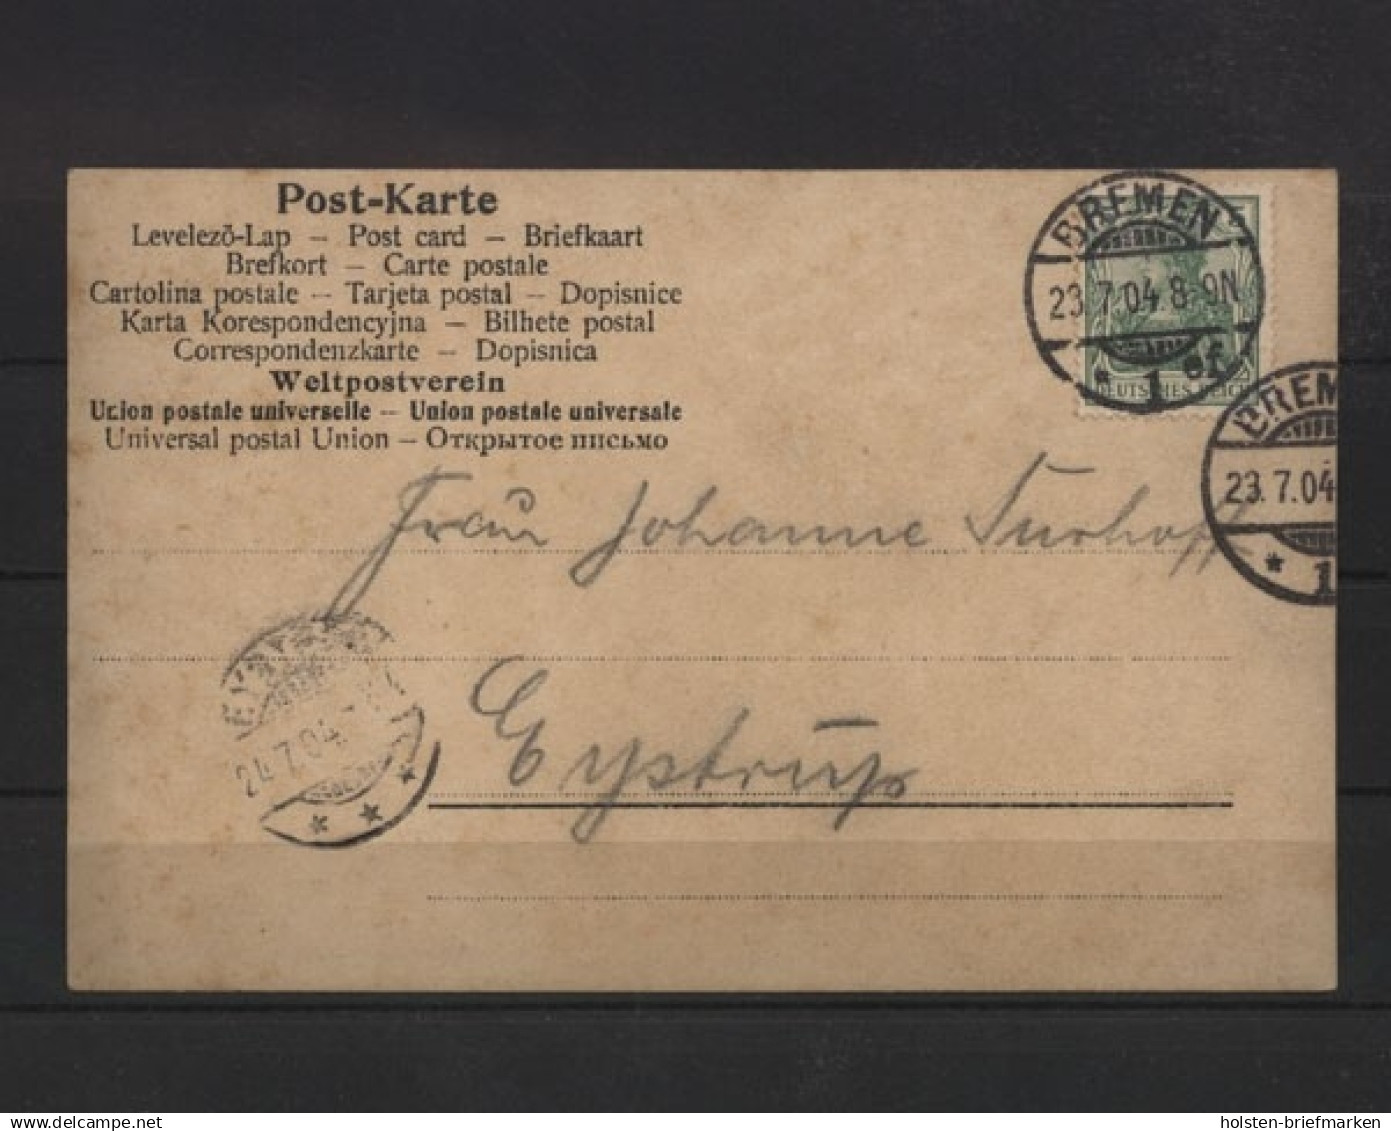 Post-Karte
Levelezŏ-Lap — Post card — Briefkaart
Brefkort — Carte postale
Cartolina postale — Tarjeta postal — Dopisnice
Karta Korespondencyjna — Bilhete postal
Correspondenzkarte — Dopisnica
Weltpostverein
Union postale universelle — Union postale universale
Universal postal Union — Открытое письмо
BREMEN
23.7.04.8-9N
* 1 ef.
DEUTSCHES REICH
BREM
23.7.04
* 1
Frau Johanne Turhoff
Eystrup
24.7.04.
* * *
delcampe.net
holsten-briefmarken